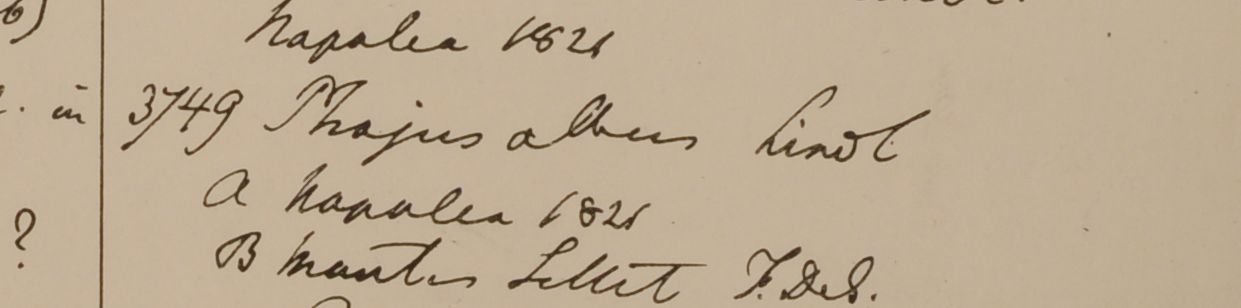 6)
Napalea 1821
. in
3749 Phajus albus Lindl
A Napalea 1821
?
B montes Sillet F. De S.